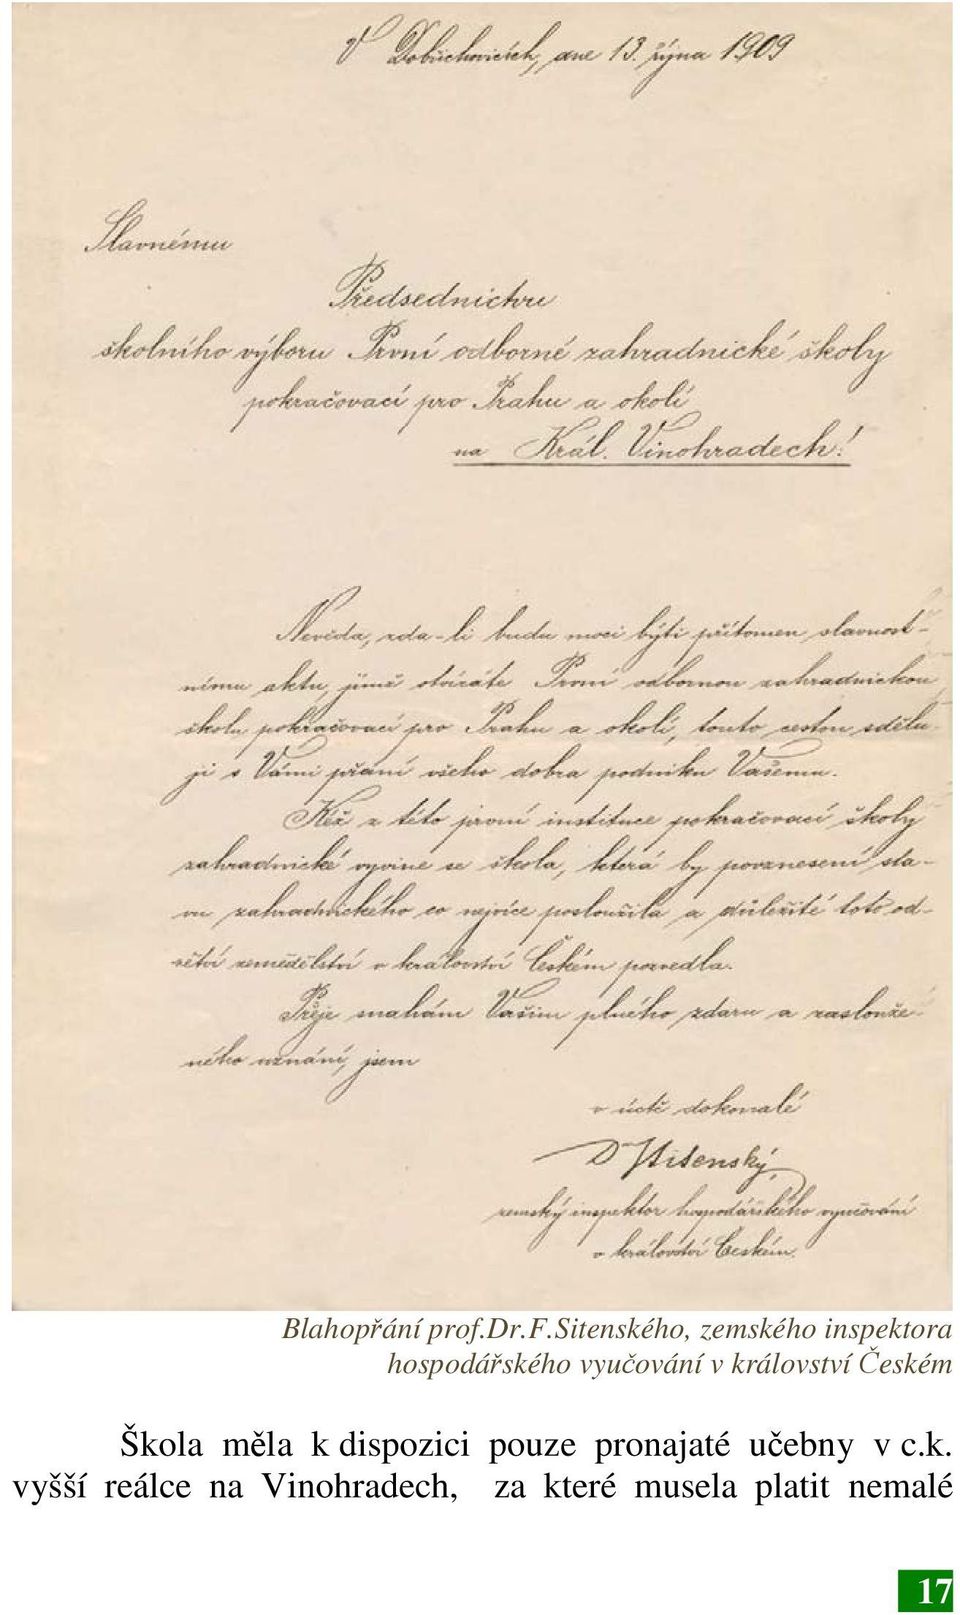 V Dobřichovicích, dne 13. října 1909
Slavnému
Předsednictvu
školního výboru První odborné zahradnické školy
pokračovací pro Prahu a okolí
na Král. Vinohradech!
Nevěda, zda-li budu moci býti přítomen slavnost-
nímu aktu, jímž otvíráte První odbornou zahradnickou
školu pokračovací pro Prahu a okolí, touto cestou sdělu-
ji s Vámi přání všeho dobra podniku Vašemu.
Kéž z této první instituce pokračovací školy
zahradnické vyvine se škola, která by povznesení sta-
vu zahradnického co nejvíce posloužila a důležité toto od-
větví zemědělství v království Českém pozvedla.
Přeje snahám Vašim plného zdaru a zaslouže-
ného uznání, jsem
v úctě dokonalé
Dr Sitenský,
zemský inspektor hospodářského vyučování
v království Českém.
Blahopřání prof.Dr.F.Sitenského, zemského inspektora
hospodářského vyučování v království Českém
Škola měla k dispozici pouze pronajaté učebny v c.k.
vyšší reálce na Vinohradech, za které musela platit nemalé
17